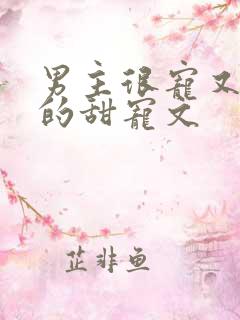 男主很宠又
的甜宠文
芷非鱼